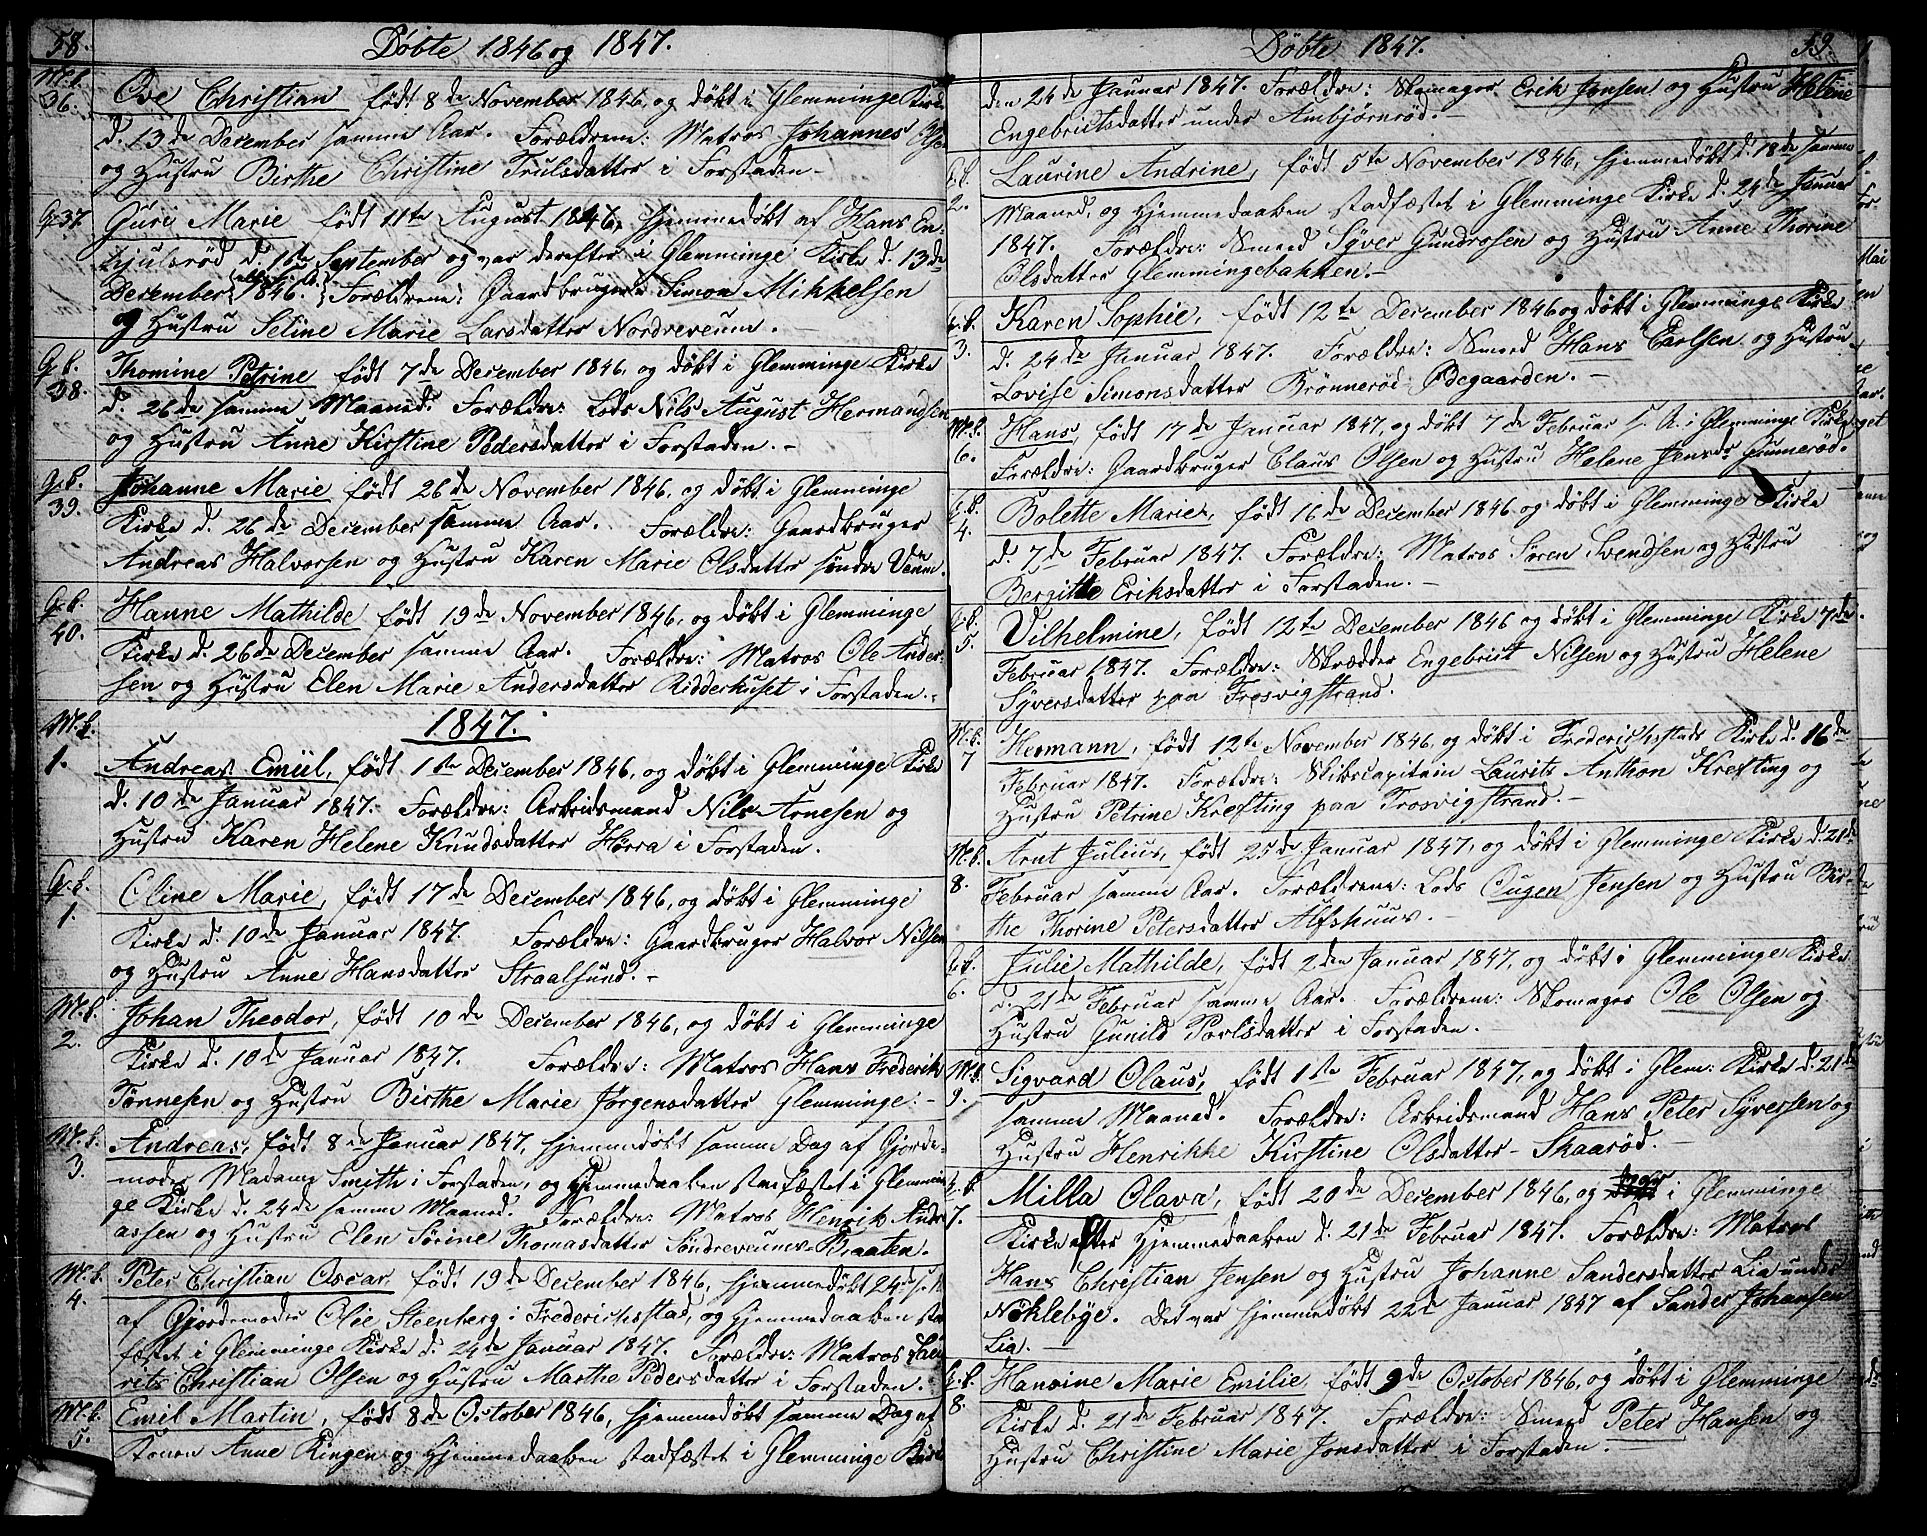 58.
Døbte 1846 og 1847.
M.b.
36.
Ove Christian født 8de November 1846, og døbt i Glemminge Kirke
d. 13de December samme Aar. Forældrene: Matros Johannes Olsen
og Hustru Birthe Christine Trulsdatter i Forstaden.-
G. 37.
Guri Marie født 11te August 1846, hjemmedøbt af Hans En-
d. 1ste September og var derefter i Glemminge Kirke d. 13de
December 1846. Forældrene: Gaardbruger Simon Mikkelsen
og Hustru Seline Marie Larsdatter Nordreveum.-
G.b.
38.
Thomine Petrine født 7de December 1846, og døbt i Glemminge Kirke
d. 26de samme Maaned. Forældre: Lods Nils August Hermandsen
og Hustru Anne Kirstine Pedersdatter i Forstaden.-
G.b.
39.
Johanne Marie født 26de November 1846, og døbt i Glemminge
Kirke d. 26de December samme Aar. Forældre: Gaardbruger
Andreas Halvorsen og Hustru Karen Marie Olsdatter søndre Veum.
G.b.
40.
Hanne Mathilde født 19de November 1846, og døbt i Glemminge
Kirke d. 26de December samme Aar. Forældre: Matros Ole Ander-
sen og Hustru Elen Marie Andersdatter Ridderhuset i Forstaden.-
1847.
M.b.
1.
Andreas Emiil, født 1ste December 1846, og døbt i Glemminge Kirke
d. 10de Januar 1847. Forældre: Arbeidsmand Nils Arnesen og
Hustru Karen Helene Knudsdatter Hørra i Forstaden.
G.b.
1.
Oline Marie, født 17de December 1846, og døbt i Glemminge
Kirke d. 10de Januar 1847. Forældre: Gaardbruger Halvor Nilsen
og Hustru Anne Hansdatter Straalsund.-
M.b.
2.
Johan Theodor, født 10de December 1846, og døbt i Glemminge
Kirke d. 10de Januar 1847. Forældre: Matros Hans Frederik
Tønnesen og Hustru Birthe Marie Jørgensdatter Glemminge.-
M.b.
3.
Andreas, født 8de Januar 1847, hjemmedøbt samme Dag af Gjorde-
moder Madame Smith i Forstaden, og Hjemmedaaben stadfæstet i Glemmin-
ge Kirke d. 24de samme Maaned. Forældre: Matros Henrik Andre-
assen og Hustru Elen Sørine Thomasdatter Søndreveums-Braaten.
M.b.
4.
Peter Christian Oscar, født 19de December 1846, hjemmedøbt 24de s. M.
af Gjordemoder Olie Steenberg i Frederichsstad, og Hjemmedaaben stad-
fæstet i Glemminge Kirke d. 24de Januar 1847. Forældre: Matros Lau-
rits Christian Olsen og Hustru Marthe Pedersdatter i Forstaden.
M.b.
5.
Emil Martin, født 8de October 1846, hjemmedøbt samme Dag af
Konen Anne Ringen og Hjemmedaaben stadfæstet i Glemminge Kirke
Døbte 1847.
59.
den 24de Januar 1847. Forældre: Skomager Erik Jensen og Hustru Helene
Engebrictsdatter under Ambjørnrød.-
G.b.
2.
Laurine Andrine, født 5te November 1846, hjemmedøbt d. 18de samme
Maaned, og Hjemmedaaben stadfæstet i Glemminge Kirke d. 24de Januar
1847. Forældre: Smed Syver Gundrosen og Hustru Anne Thorine
Olsdatter Glemmingebakken.-
G.b.
3.
Karen Sophie, født 12te December 1846 og døbt i Glemminge Kirke
d. 24de Januar 1847. Forældre: Smed Hans Carlsen og Hustru
Lovise Simonsdatter Brønnerød Ødegaarden.-
M.b.
6.
Hans, født 17de Januar 1847, og døbt 7de Februar s. A. i Glemminge Kirke.
Forældre: Gaardbruger Claus Olsen og Hustru Helene Jensdr. Gunnerød.
G.b.
4.
Bolette Marie, født 16de December 1846 og døbt i Glemminge Kirke
d. 7de Februar 1847. Forældre: Matros Søren Svendsen og Hustru
Bergitte Eriksdatter i Forstaden.-
G.b.
5.
Vilhelmine, født 12te December 1846 og døbt i Glemminge Kirke 7de
Februar 1847. Forældre: Skrædder Engebrict Nilsen og Hustru Helene
Syversdatter paa Trosvigstrand.
M.b.
7
Hermann, født 12te November 1846, og døbt i Frederichsstads Kirke d. 16de
Februar 1847. Forældre: Skibscapitain Laurits Anthon Krefting og
Hustru Petrine Krefting paa Trosvigstrand.-
M.b.
8.
Arnt Julius, født 25de Januar 1847, og døbt i Glemminge Kirke d. 21de
Februar samme Aar. Forældrene: Lods Eugen Jensen og Hustru Bir-
the Thorine Petersdatter Alfshuus.-
G.b.
6.
Julie Mathilde, født 2den Januar 1847, og døbt i Glemminge Kirke
d. 21de Februar samme Aar. Forældrene: Skomager Ole Olsen og
Hustru Gunild Povlsdatter i Forstaden.-
M.b.
9.
Sigvard Claus, født 1ste Februar 1847, og døbt i Glem: Kirke d. 21de
samme Maaned. Forældre: Arbeidsmand Hans Peter Syversen og
Hustru Henrikke Kirstine Olsdatter - Skaarød.-
G.b.
7.
Milla Olava, født 20de December 1846, og i Glemminge
Kirke efter Hjemmedaaben d. 21de Februar 1847. Forældre: Matros
Hans Christian Jensen og Hustru Johanne Sandersdatter Lia under
Nøkleby. Det var hjemmedøbt 22de Januar 1847 af Sander Johansen
Lia.-
G.b.
8.
Hansine Marie Emilie, født 9de October 1846, og døbt i Glemminge
Kirke d. 21de Februar 1847. Forældre: Smed Peter Hansen og
Hustru Christine Marie Jonsdatter i Forstaden.